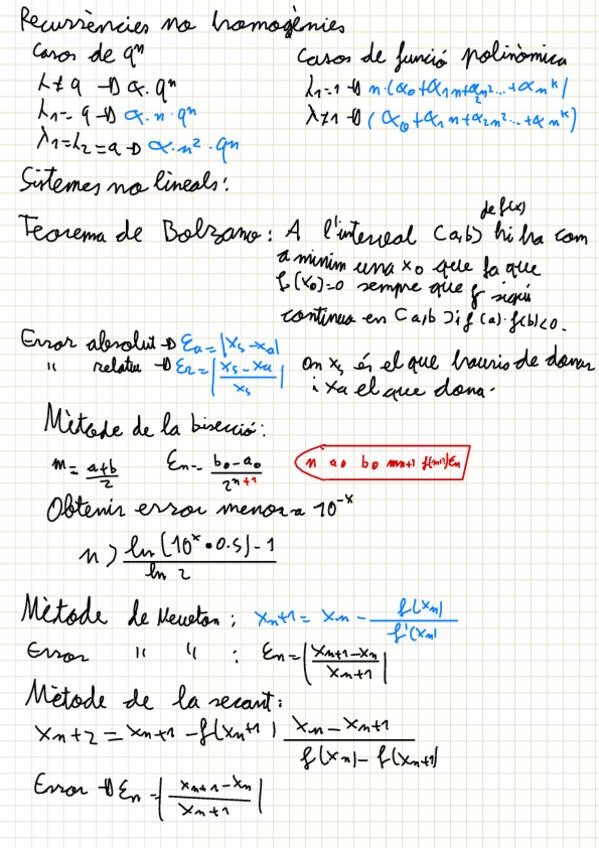 Recurrències no homogènies
Casos de qⁿ
λ≠q → α·qⁿ
λ₁=q → α·n·qⁿ
λ₁=λ₂=q → α·n²·qⁿ
Casos de funció polinòmica
λ₁=1 → n(α₀+α₁n+α₂n²...+αnᵏ)
λ≠1 → (α₀+α₁n+α₂n²...+αnᵏ)
Sistemes no lineals:
de f(x)
Teorema de Bolzano: A l'interval (a,b) hi ha com
a minim una x₀ que fa que
f(x₀)=0 sempre que f sigui
continua en (a,b) i f(a)·f(b)<0.
Error absolut → Ea=|xs-xa|
" relatiu → Er=|(xs-xa)/xs|
on xs és el que hauria de donar
i xa el que dona.
Mètode de la bisecció:
m=(a+b)/2 En=(b₀-a₀)/2ⁿ⁺¹ n a₀ b₀ mn+1 f(mn+1) En
Obtenir error menor a 10⁻ˣ
n > (ln(10ˣ·0.5)-1)/ln 2
Mètode de Newton: xn+1 = xn - f(xn)/f'(xn)
Error " " : En=|(xn+1-xn)/xn+1|
Mètode de la secant:
xn+2 = xn+1 - f(xn+1) (xn-xn+1)/(f(xn)-f(xn+1))
Error → En=|(xn+1-xn)/xn+1|